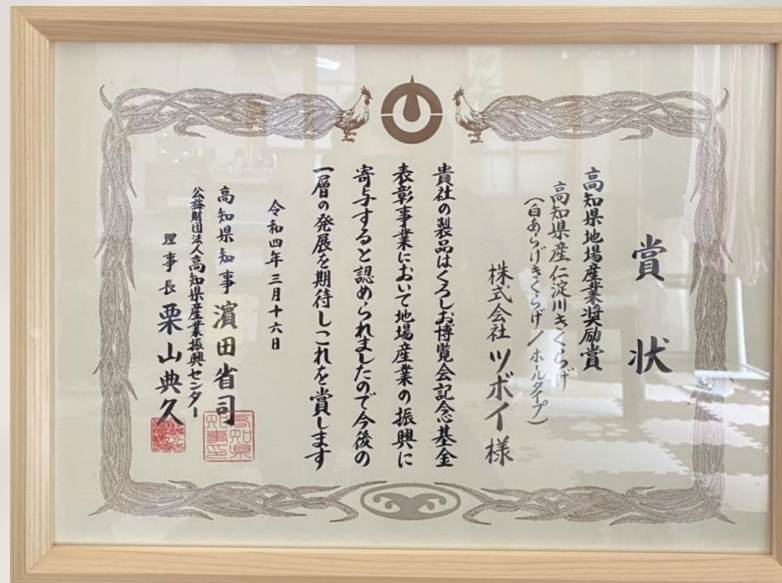 賞状
高知県地場産業奨励賞
高知県産仁淀川きくらげ
(白あらげきくらげ/ホールタイプ)
株式会社ツボイ様
貴社の製品はくろしお博覧会記念基金
表彰事業において地場産業の振興に
寄与すると認められましたので今後の
一層の発展を期待しこれを賞します
令和四年三月十六日
高知県知事 濵田省司
公益財団法人高知県産業振興センター
理事長 栗山典久
高知県知事印